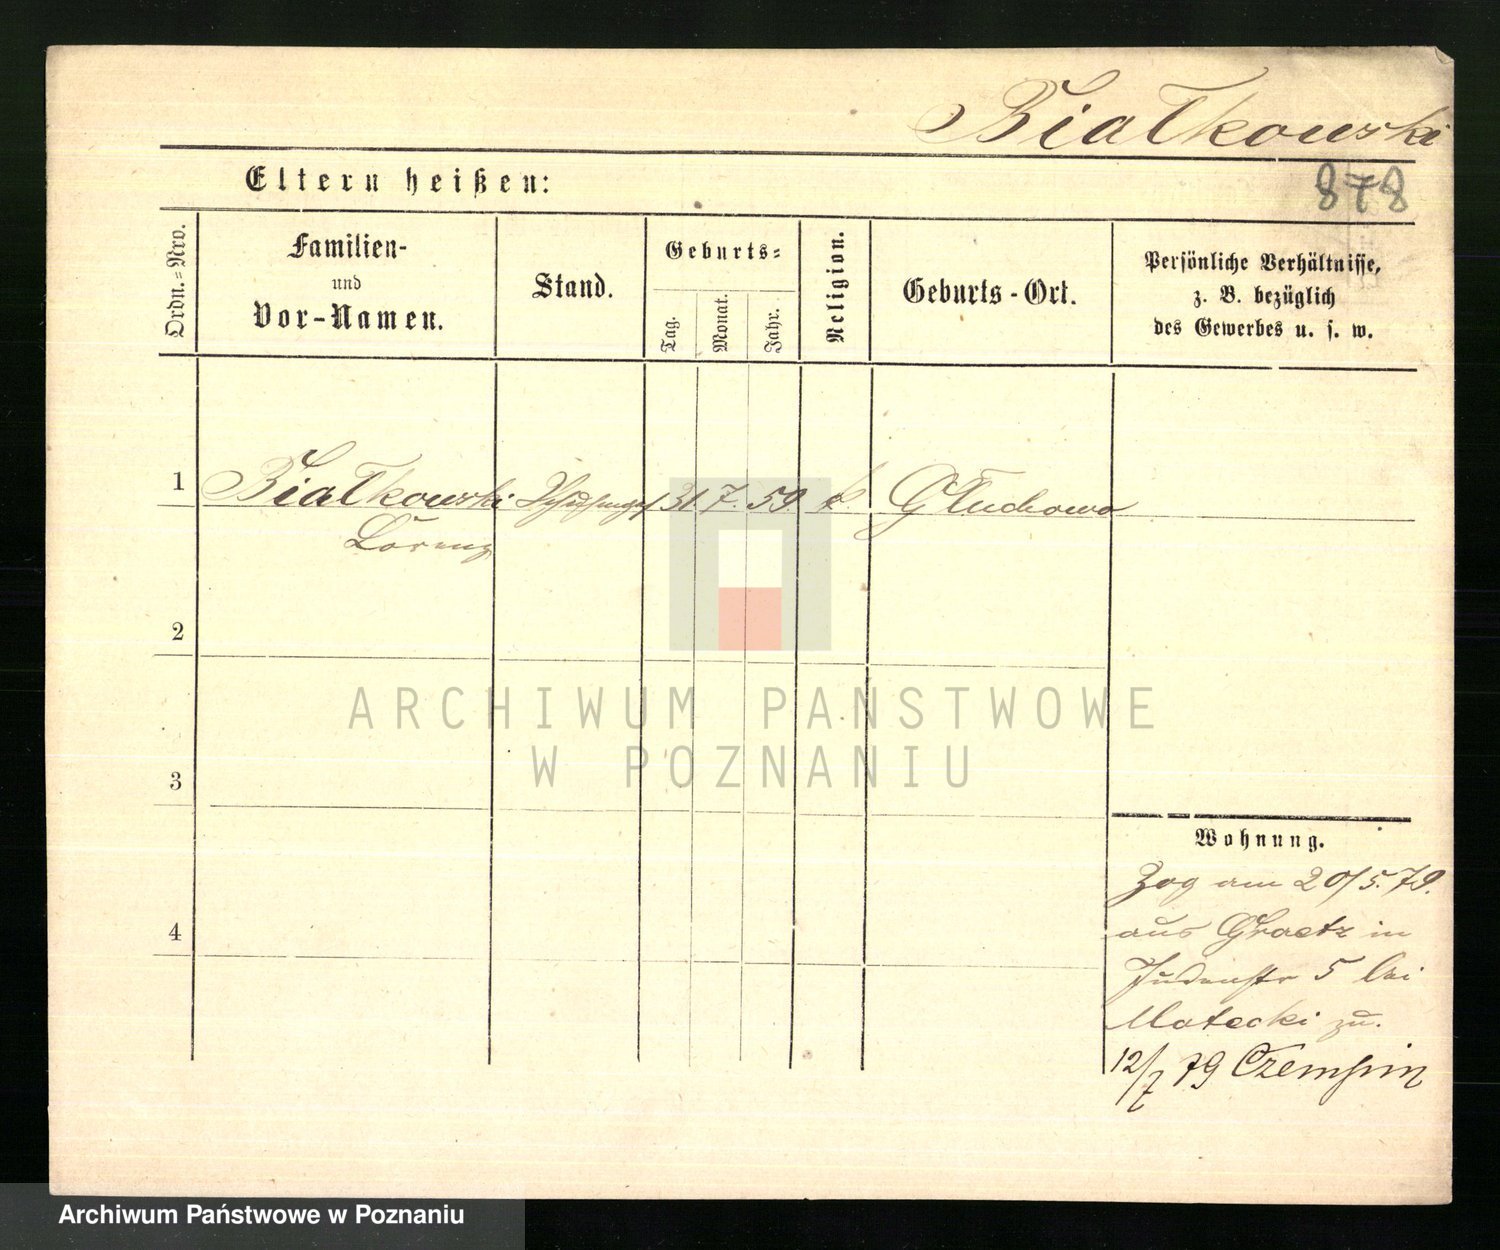 Białkowski
Eltern heißen:
878
Ordn.=Nro.
Familien-
und
Vor-Namen.
Stand.
Geburts=
Tag.
Monat.
Jahr.
Religion.
Geburts-Ort.
Persönliche Verhältnisse,
z. B. bezüglich
des Gewerbes u. s. w.
1 Białkowski 31 7. 59. k. Głuchowo
Lorenz
2
3
4
Wohnung.
Zog am 20/5. 79.
aus Graetz in
Judenstr 5 bei
Matecki zu.
12/7 79 Czempin
ARCHIWUM PAŃSTWOWE
W POZNANIU
Archiwum Państwowe w Poznaniu